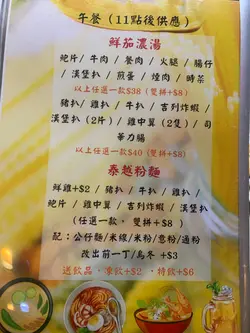 午餐（11點後供應）
鮮茄濃湯
鮑片/牛肉/餐肉/火腿/腸仔
/漢堡扒/煎蛋/煙肉/時菜
以上任選一款$38（雙拼+$8）
豬扒/雞扒/牛扒/吉列炸蝦/
漢堡扒（2片）/雞中翼（2隻）/司
華力腸
以上任選一款$40（雙拼+$8）
泰越粉麵
鮮雞+$2 / 豬扒 / 牛扒 / 雞扒 /
鮑片 / 雞中翼 / 吉列炸蝦 / 漢堡扒
（任選一款，雙拼+$8 ）
配：公仔麵/米線/米粉/意粉/通粉
改出前一丁/烏冬 +$3
送飲品，凍飲+$2 ，特飲+$6